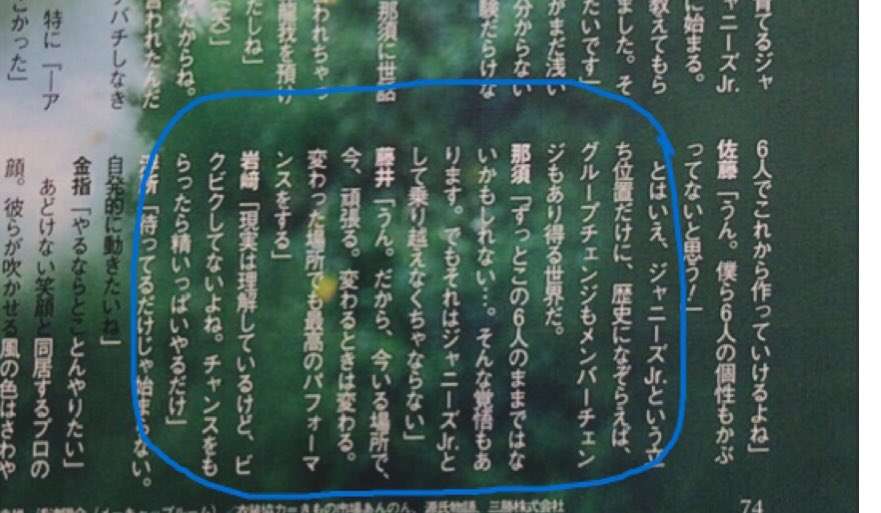 育てるジャ
ャニーズJr.
に始まる。
教えてもら
ました。そ
がまだ浅い
たいです」
分からない
験だらけな
那須に世話
われちゃっ
だしね」
(笑)
たからね。
言われたんだ
バチしなき
特に「一ア
かった」
6人でこれから作っていけるよね」
佐藤「うん。僕ら6人の個性もかぶ
ってないと思う!」
とはいえ、ジャニーズJr.という立
ち位置だけに、歴史になぞらえば、
グループチェンジもメンバーチェン
ジもあり得る世界だ。
那須「ずっとこの6人のままではな
いかもしれない…。そんな覚悟もあ
ります。でもそれはジャニーズJr.と
して乗り越えなくちゃならない」
藤井「うん。だから、今いる場所で、
今、頑張る。変わるときは変わる。
変わった場所でも最高のパフォーマ
ンスをする」
岩﨑「現実は理解しているけど、ビ
クビクしてないよね。チャンスをも
らったら精いっぱいやるだけ」
浮所「待ってるだけじゃ始まらない。
自発的に動きたいね」
金指「やるならとことんやりたい」
あどけない笑顔と同居するプロの
顔。彼らが吹かせる風の色はさわや
衣装協力=きもの市場あんのん、源氏物語、三勝株式会社
74